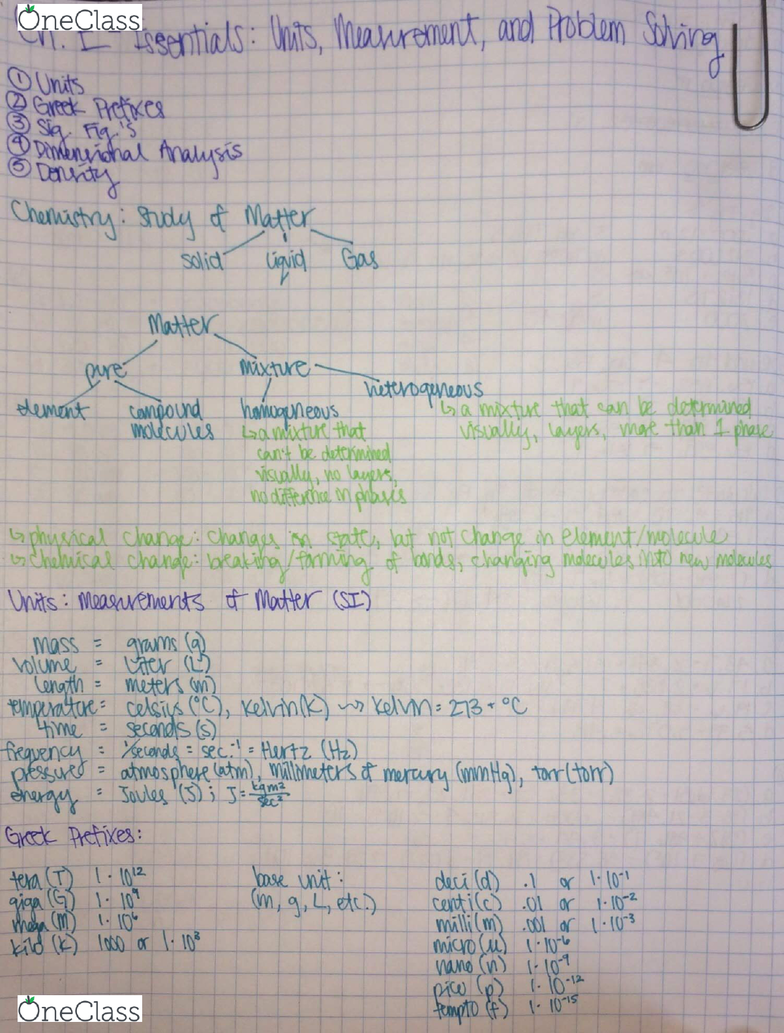 OneClass
Ch. 1 Essentials: Units, Measurement, and Problem Solving
① Units
② Greek Prefixes
③ Sig. Fig.'s
④ Dimensional Analysis
⑤ Density
Chemistry: Study of Matter
solid liquid Gas
Matter
pure mixture
heterogeneous
element compound homogeneous ↳ a mixture that can be determined
molecules ↳ a mixture that visually, layers, more than 1 phase
can't be determined
visually, no layers,
no difference in phases
↳ physical change: changes in state, but not change in element/molecule
↳ chemical change: breaking/forming of bonds, changing molecules into new molecules
Units: Measurements of Matter (SI)
mass = grams (g)
volume = Liter (L)
length = meters (m)
temperature = celsius (°C), Kelvin (K) ⇝ Kelvin = 273 + °C
time = seconds (s)
frequency = 1/seconds = sec.⁻¹ = Hertz (Hz)
pressured = atmosphere (atm), millimeters of mercury (mmHg), torr (torr)
energy = Joules (J); J = kgm²/sec²
Greek Prefixes:
tera (T) 1·10¹² base unit: deci (d) .1 or 1·10⁻¹
giga (G) 1·10⁹ (m, g, L, etc.) centi (c) .01 or 1·10⁻²
mega (M) 1·10⁶ milli (m) .001 or 1·10⁻³
kilo (K) 1000 or 1·10³ micro (µ) 1·10⁻⁶
nano (n) 1·10⁻⁹
pico (p) 1·10⁻¹²
fempto (f) 1·10⁻¹⁵
OneClass